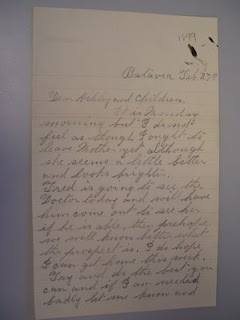 1899
Batavia Feb 27th
Dear Ashley and Children.
It is Monday
morning but I do not
feel as though I ought to
leave Mother yet although
she seems a little better
and looks brighter.
Fred is going to see the
Doctor today and will have
him come out to see her
if he is able, then perhaps
we will know better what
the prospect is. I do hope
I can get home this week.
Try and do the best you
can and if I am needed
badly let me know and